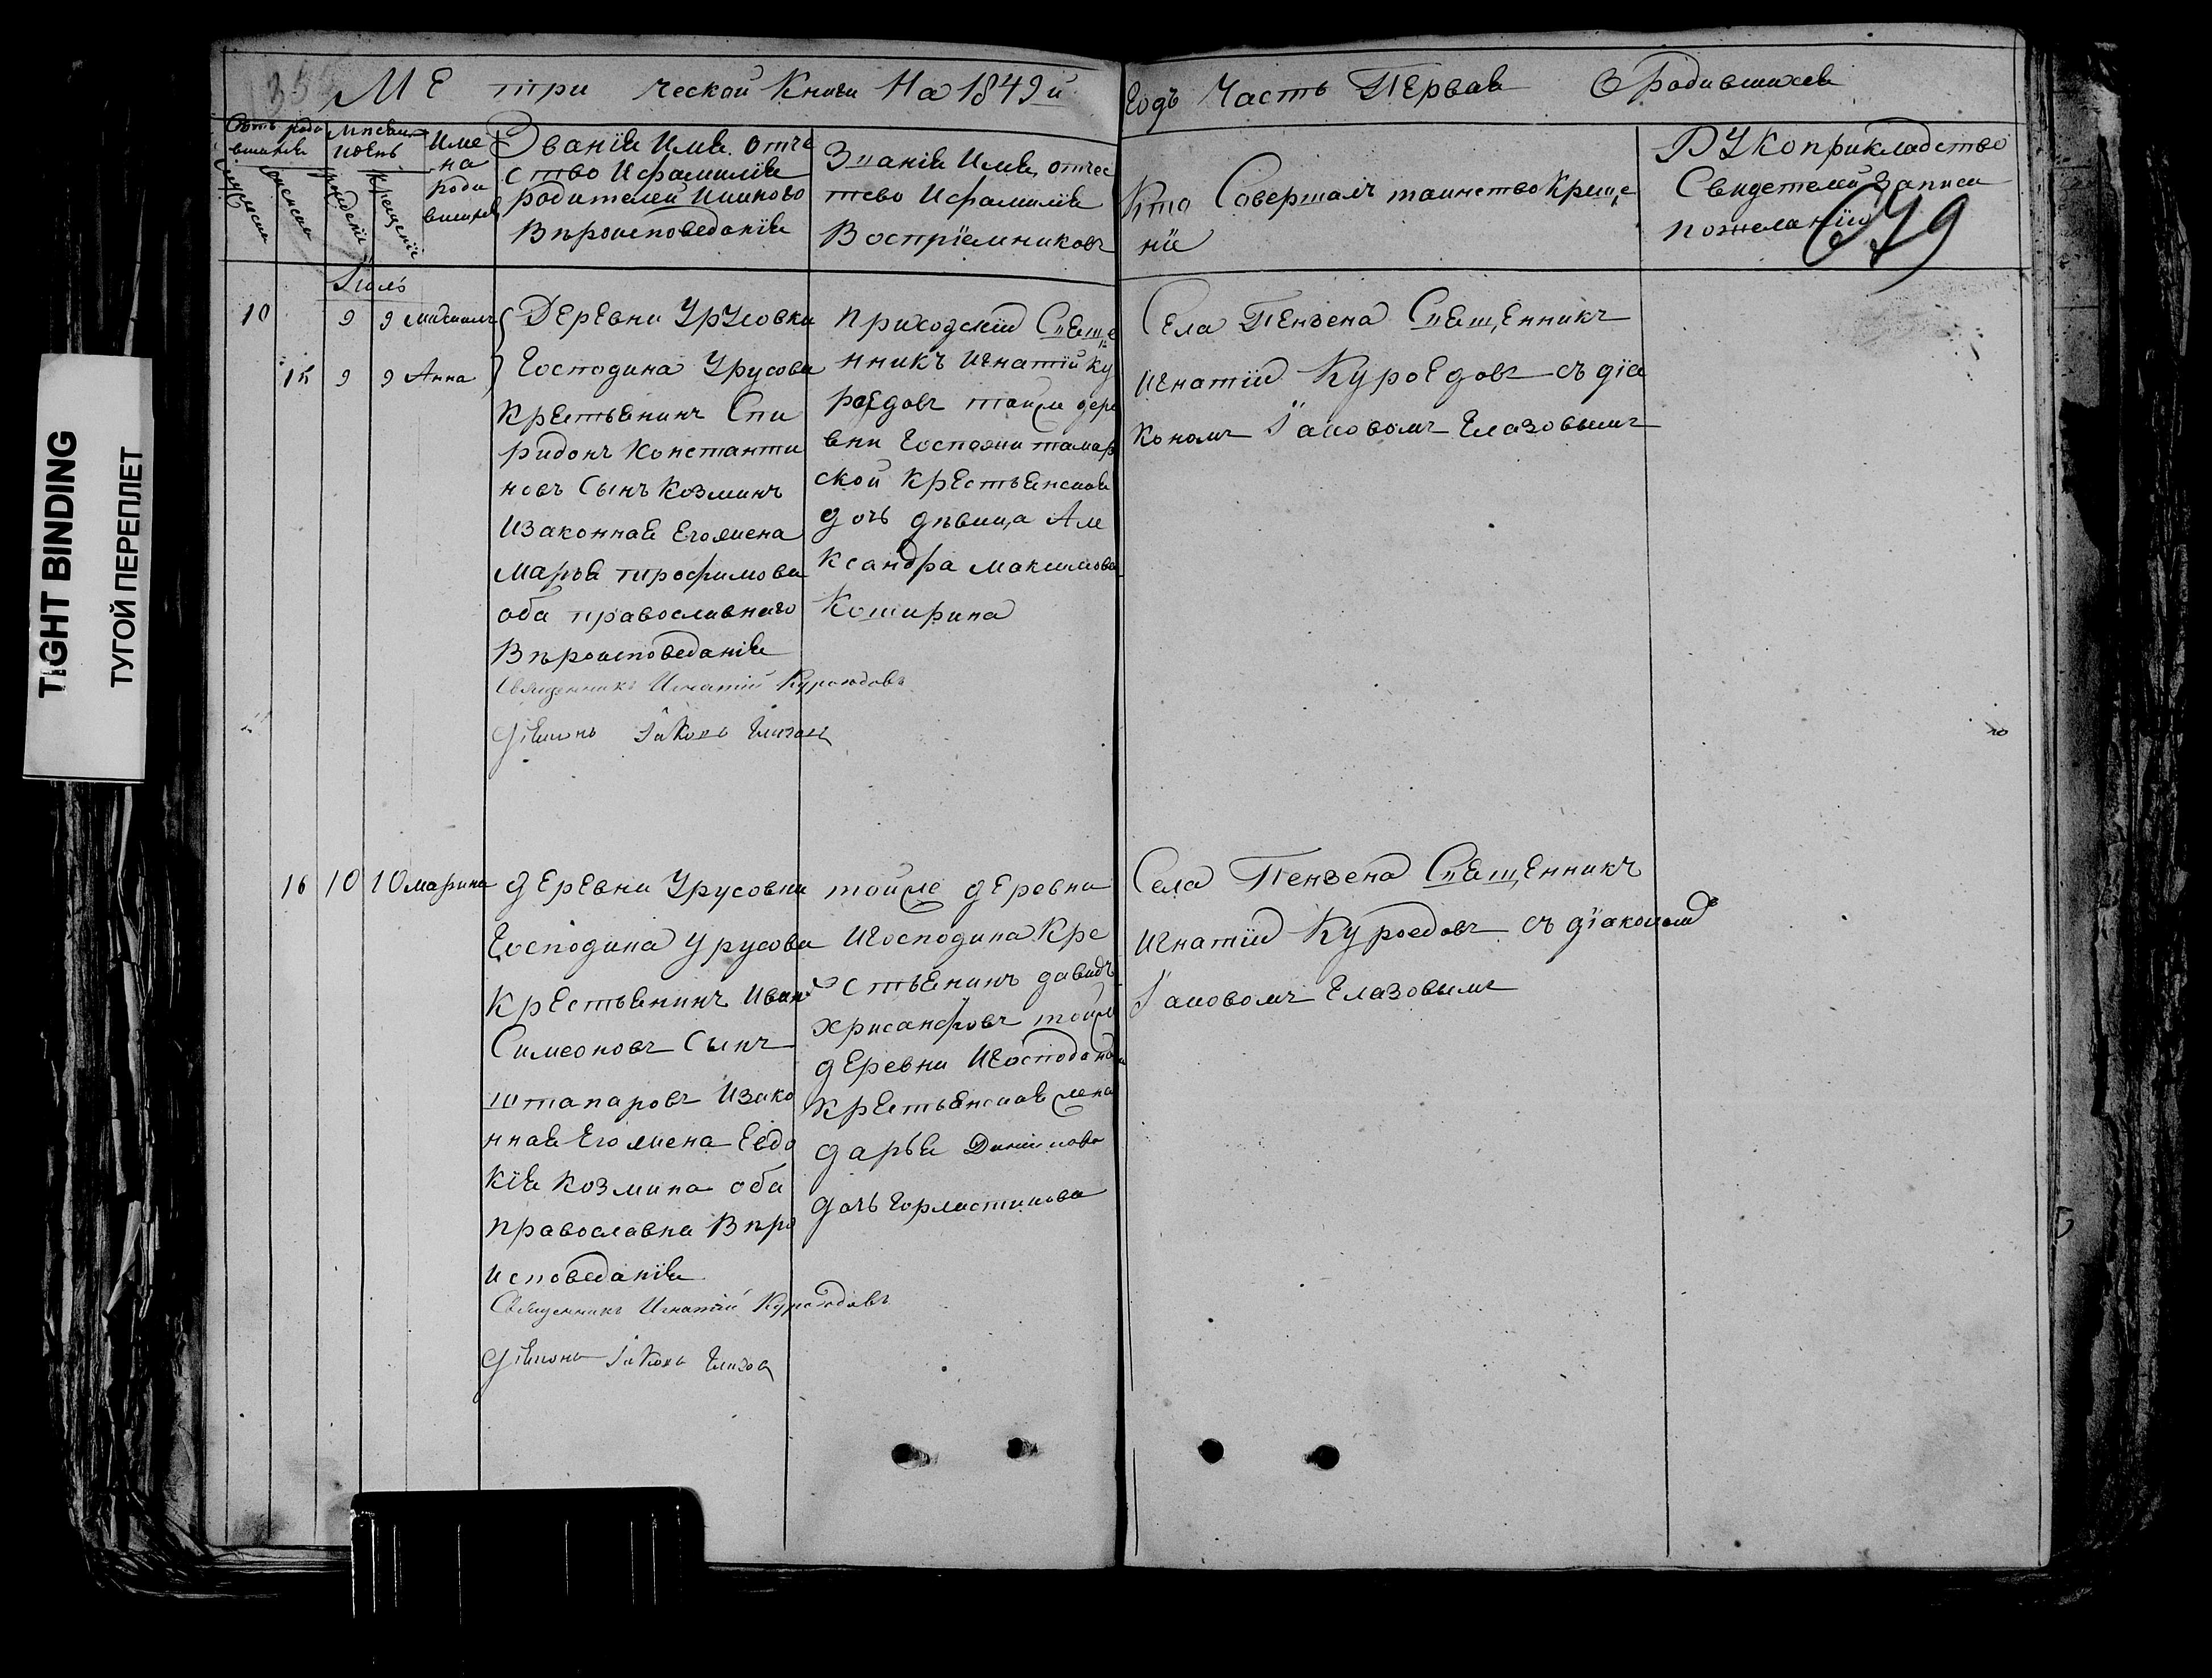 МЕ три ческой Книги На 1849й
Годъ Часть Первая О Родившихся
Мѣсяцъ
Име
на
роди
вшихся
Званïя Имя Отче
ство И фамилïя
родителей И какого
Вѣроисповеданïя
Званïя Имя, отчес
тво И фамилïя
Воспрïемниковъ
Кто Совершалъ таинство креще
нïя
РУкоприкладство
Свидетелей Записи
по желанïю
679
Iюль
10 9 9 Михаилъ
15 9 9 Анна
ДЕрЕвни УрУсовки
Господина Урусова
КрЕстьянинъ Спи
ридонъ Константи
новъ Сынъ Козминъ
И законная Его жена
Марья трофимова
оба православнаго
Вѣроисповеданïя
Священникъ Игнатïй Куроедовъ
Дïяконъ Iаковъ Глазовъ
приходскïй Свяще
нникъ Игнатïй Ку
роЕдовъ тойже дере
вни Госпожи тамар
ской крЕстьянская
дочь дѣвица Але
ксандра Максимова
Коширина
СЕла ПЕнзЕна СвящЕнникъ
Игнатïй КуроЕдовъ съ дïа
кономъ Iаковомъ Глазовымъ
16 10 10 марина
дЕрЕвни Урусовки
Господина Урусова
КрЕстьянинъ Иванъ
Симеоновъ Сынъ
Штапаровъ И зако
нная Его жена Евдо
кïя Козмина оба
православна Вѣро
исповеданïя
Священникъ Игнатïй Куроедовъ
Дïяконъ Iаковъ Глазовъ
тойже дЕревни
И Господина Кре
стьянинъ давидъ
хрисанфовъ тойже
дЕревни И Господина
крЕстьянская жена
дарья Данилова
дочь
Села ПЕнзена СвящЕнникъ
Игнатïй Куроедовъ съ дïакономъ
Iаковомъ Глазовымъ
TIGHT BINDING
ТУГОЙ ПЕРЕПЛЕТ